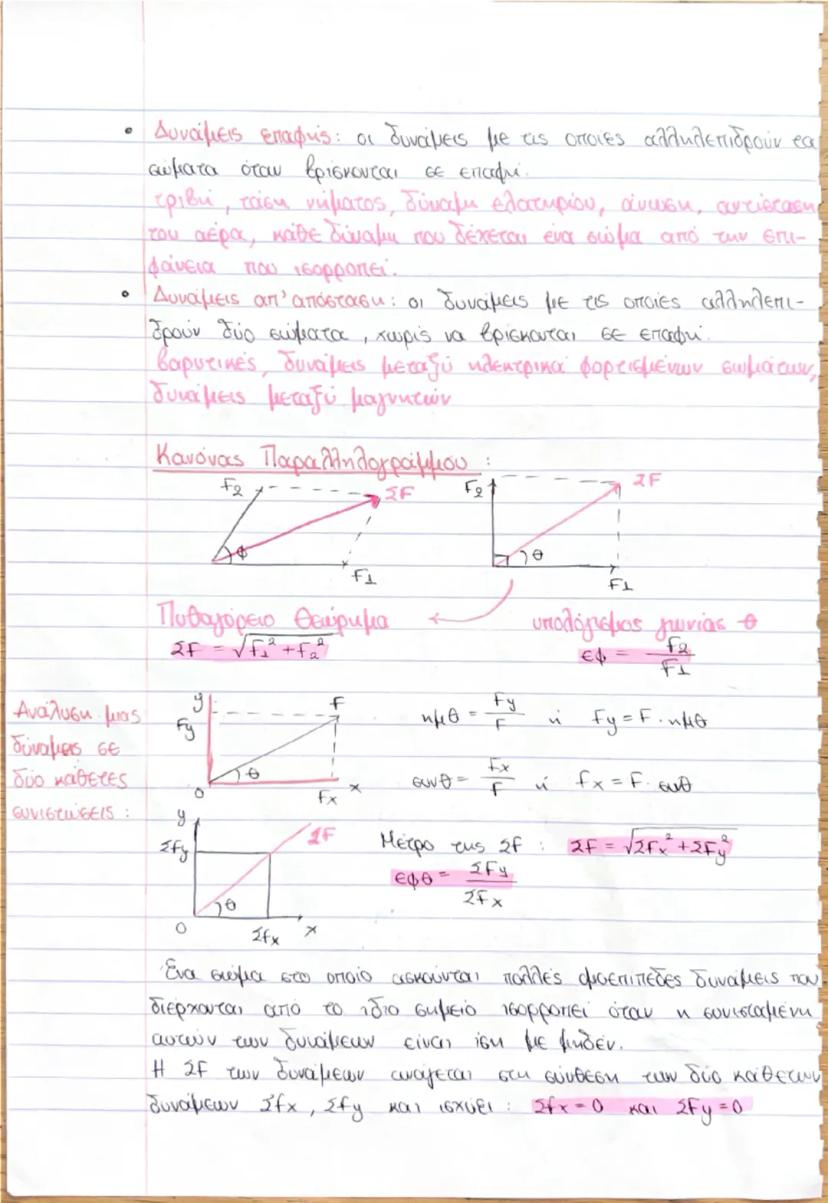 • Δυνάμεις επαφής: οι δυνάμεις με τις οποίες αλληλεπιδρούν τα
σώματα όταν βρίσκονται σε επαφή.
τριβή, τάση νήματος, δύναμη ελατηρίου, άνωση, αντίσταση
του αέρα, κάθε δύναμη που δέχεται ένα σώμα από την επι-
φάνεια που ισορροπεί.
• Δυνάμεις απ' απόσταση: οι δυνάμεις με τις οποίες αλληλεπι-
δρούν δύο σώματα, χωρίς να βρίσκονται σε επαφή.
βαρυτικές, δυνάμεις μεταξύ ηλεκτρικά φορτισμένων σωμάτων,
δυνάμεις μεταξύ μαγνητών
Κανόνας Παραλληλογράμμου:
F2 ΣF F2 ΣF
φ θ
F1 F1
Πυθαγόρειο Θεώρημα υπολόγισμος γωνίας θ
ΣF = √F1² + F2² εφ = F2/F1
Ανάλυση μιας
δύναμεις σε
δύο κάθετες
συνιστώσεις:
y F
Fy
θ
0 Fx x
ημθ = Fy/F ή Fy = F · ημθ
συνθ = Fx/F ή Fx = F · συνθ
y ΣF
ΣFy
θ
0 ΣFx x
Μέτρο της ΣF: ΣF = √ΣFx² + ΣFy²
εφθ = ΣFy/ΣFx
Ένα σώμα στο οποίο ασκούνται πολλές ομοεπίπεδες δυνάμεις που
διέρχονται από το ίδιο σημείο ισορροπεί όταν η συνισταμένη
αυτών των δυνάμεων είναι ίση με μηδέν.
Η ΣF των δυνάμεων ανάγεται στη σύνθεση των δύο κάθετων
δυνάμεων ΣFx, ΣFy και ισχύει: ΣFx = 0 και ΣFy = 0